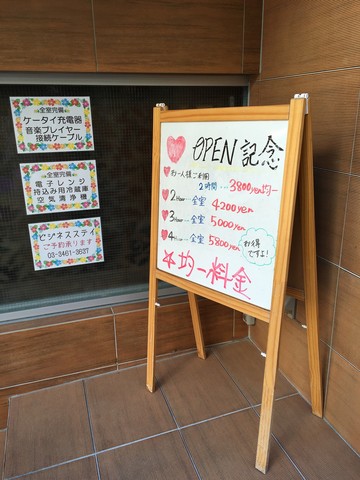 全室完備
ケータイ充電器
音楽プレイヤー
接続ケーブル
全室完備
電子レンジ
持込み用冷蔵庫
空気清浄機
ビジネスステイ
ご予約承ります
03-3461-3637
OPEN記念
お一人様ご利用
2時間… 3800yenより〜
2Hour… 全室 4200yen
3Hour… 全室 5000yen
4Hour… 全室 5800yen
お得ですよ!
均一料金